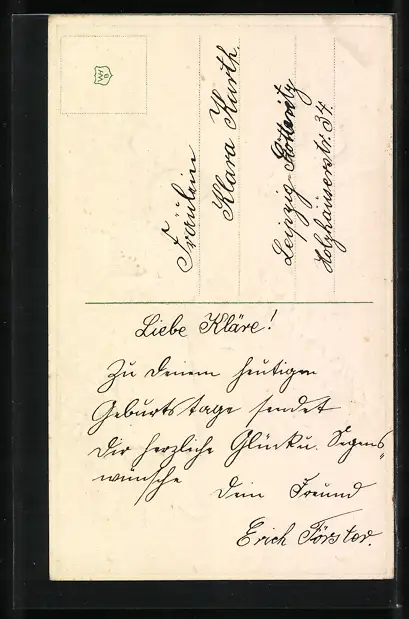 Fräulein
Klara Kurth
Leipzig-Stötteritz
Holzhäuserstr. 34.
Liebe Kläre!
Zu Deinem heutigen
Geburtstage sendet
Dir herzliche Glück u. Segens„
wünsche
Dein Freund
Erich Förster.